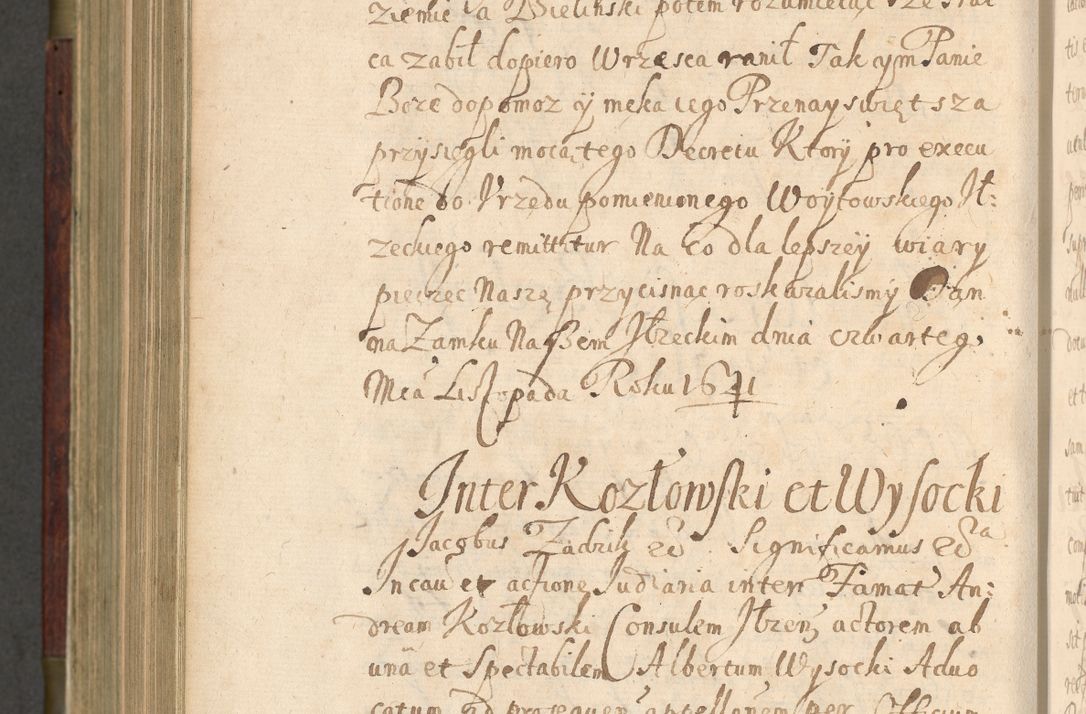 ziemie a Bielinski potem rozumieiąc
ca zabił dopiero Wrzesca ranił Tak ÿm Panie
Boze dopomoz ÿ męka iego Przenayswiętsza
przysięgli mocą tego Decretu Ktorÿ pro execu
tione do Vrzędu pomienionego Woÿtowskiego Jł:
zeckiego remittitur Na co dla lepszeÿ wiary
pieczęc Naszę przycisnąc roskazalismÿ Dan
na Zamku Naszem Jłzeckim dnia czwarteg
Mca Listopada Roku 1641
Inter Kozłowski et Wysocki
Jacobus Zadzik &c. Significamus &c a
In cau et actione Judiaria inter Famat An:
dream Kozłowski Consulem Jłzen actorem ab
una et Spectabilem Albertum Wysocki Aduo
catum ad prosequen appellonem per Officium